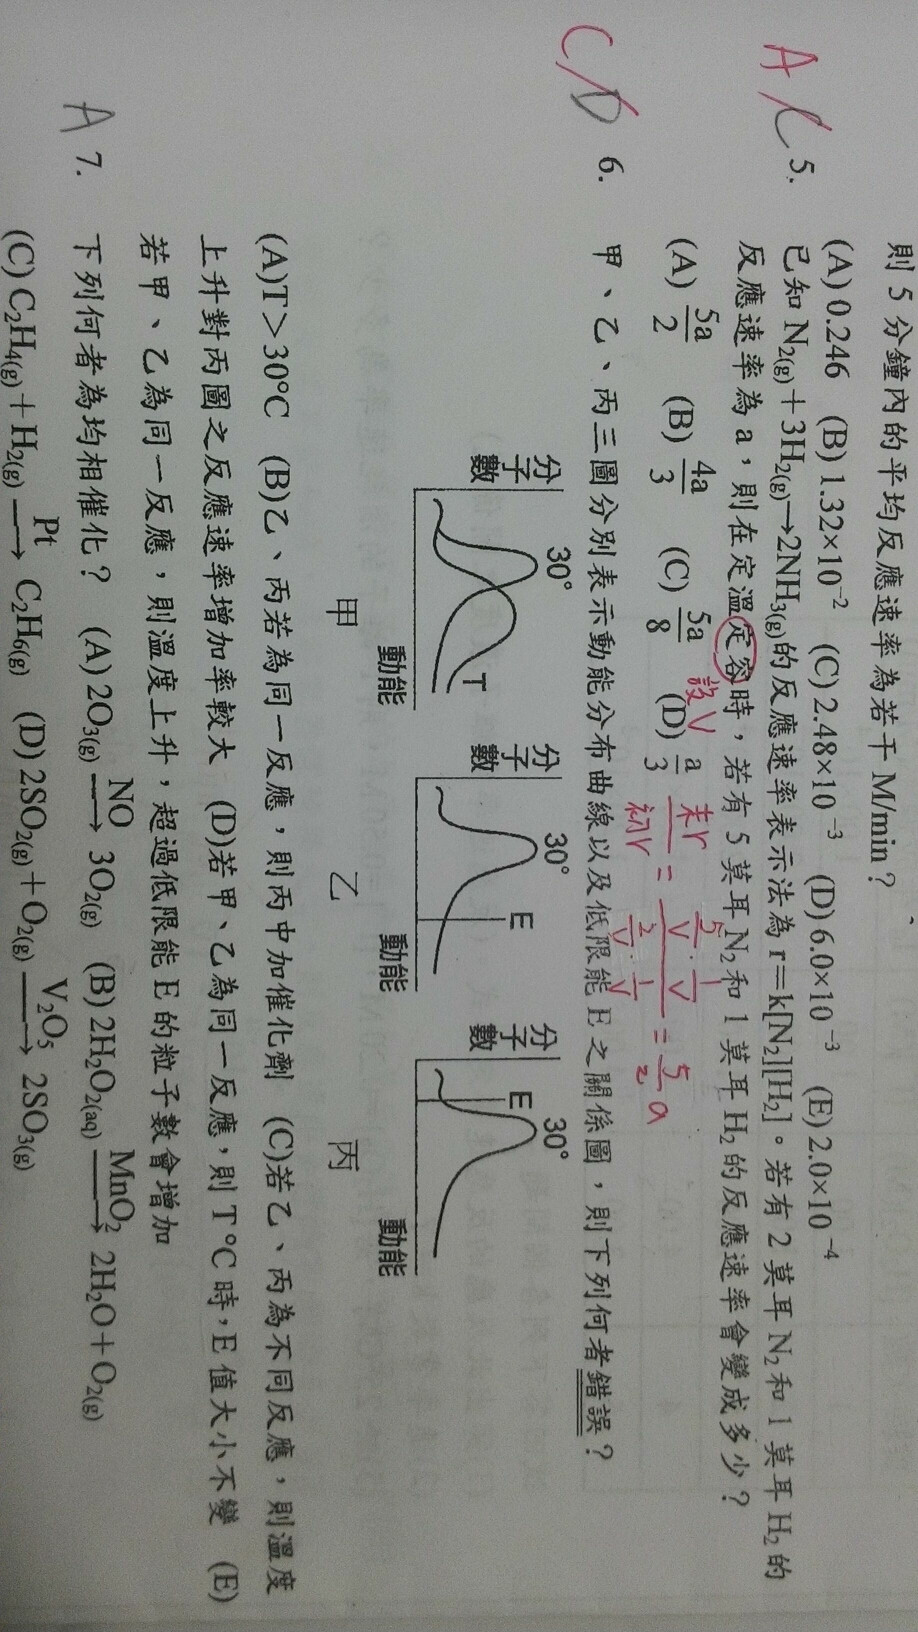 則 5 分鐘內的平均反應速率為若干 M/min？
(A) 0.246 (B) 1.32×10⁻² (C) 2.48×10⁻³ (D) 6.0×10⁻³ (E) 2.0×10⁻⁴
A C 5. 已知 N₂(g)＋3H₂(g)→2NH₃(g)的反應速率表示法為 r＝k[N₂][H₂]。若有 2 莫耳 N₂ 和 1 莫耳 H₂ 的
反應速率為 a，則在定溫定容時，若有 5 莫耳 N₂ 和 1 莫耳 H₂ 的反應速率會變成多少？
(A) 5a/2 (B) 4a/3 (C) 5a/8 (D) a/3
設V 末r/初r = (5/V · 1/V)/(2/V · 1/V) = 5/2 a
C D 6. 甲、乙、丙三圖分別表示動能分布曲線以及低限能 E 之關係圖，則下列何者錯誤？
分子數 30° T 動能
分子數 30° E 動能
分子數 30° E 動能
甲 乙 丙
(A)T＞30°C (B)乙、丙若為同一反應，則丙中加催化劑 (C)若乙、丙為不同反應，則溫度
上升對丙圖之反應速率增加率較大 (D)若甲、乙為同一反應，則 T°C 時，E 值大小不變 (E)
若甲、乙為同一反應，則溫度上升，超過低限能 E 的粒子數會增加
A 7. 下列何者為均相催化？ (A) 2O₃(g) NO→ 3O₂(g) (B) 2H₂O₂(aq) MnO₂→ 2H₂O＋O₂(g)
(C) C₂H₄(g)＋H₂(g) Pt→ C₂H₆(g) (D) 2SO₂(g)＋O₂(g) V₂O₅→ 2SO₃(g)